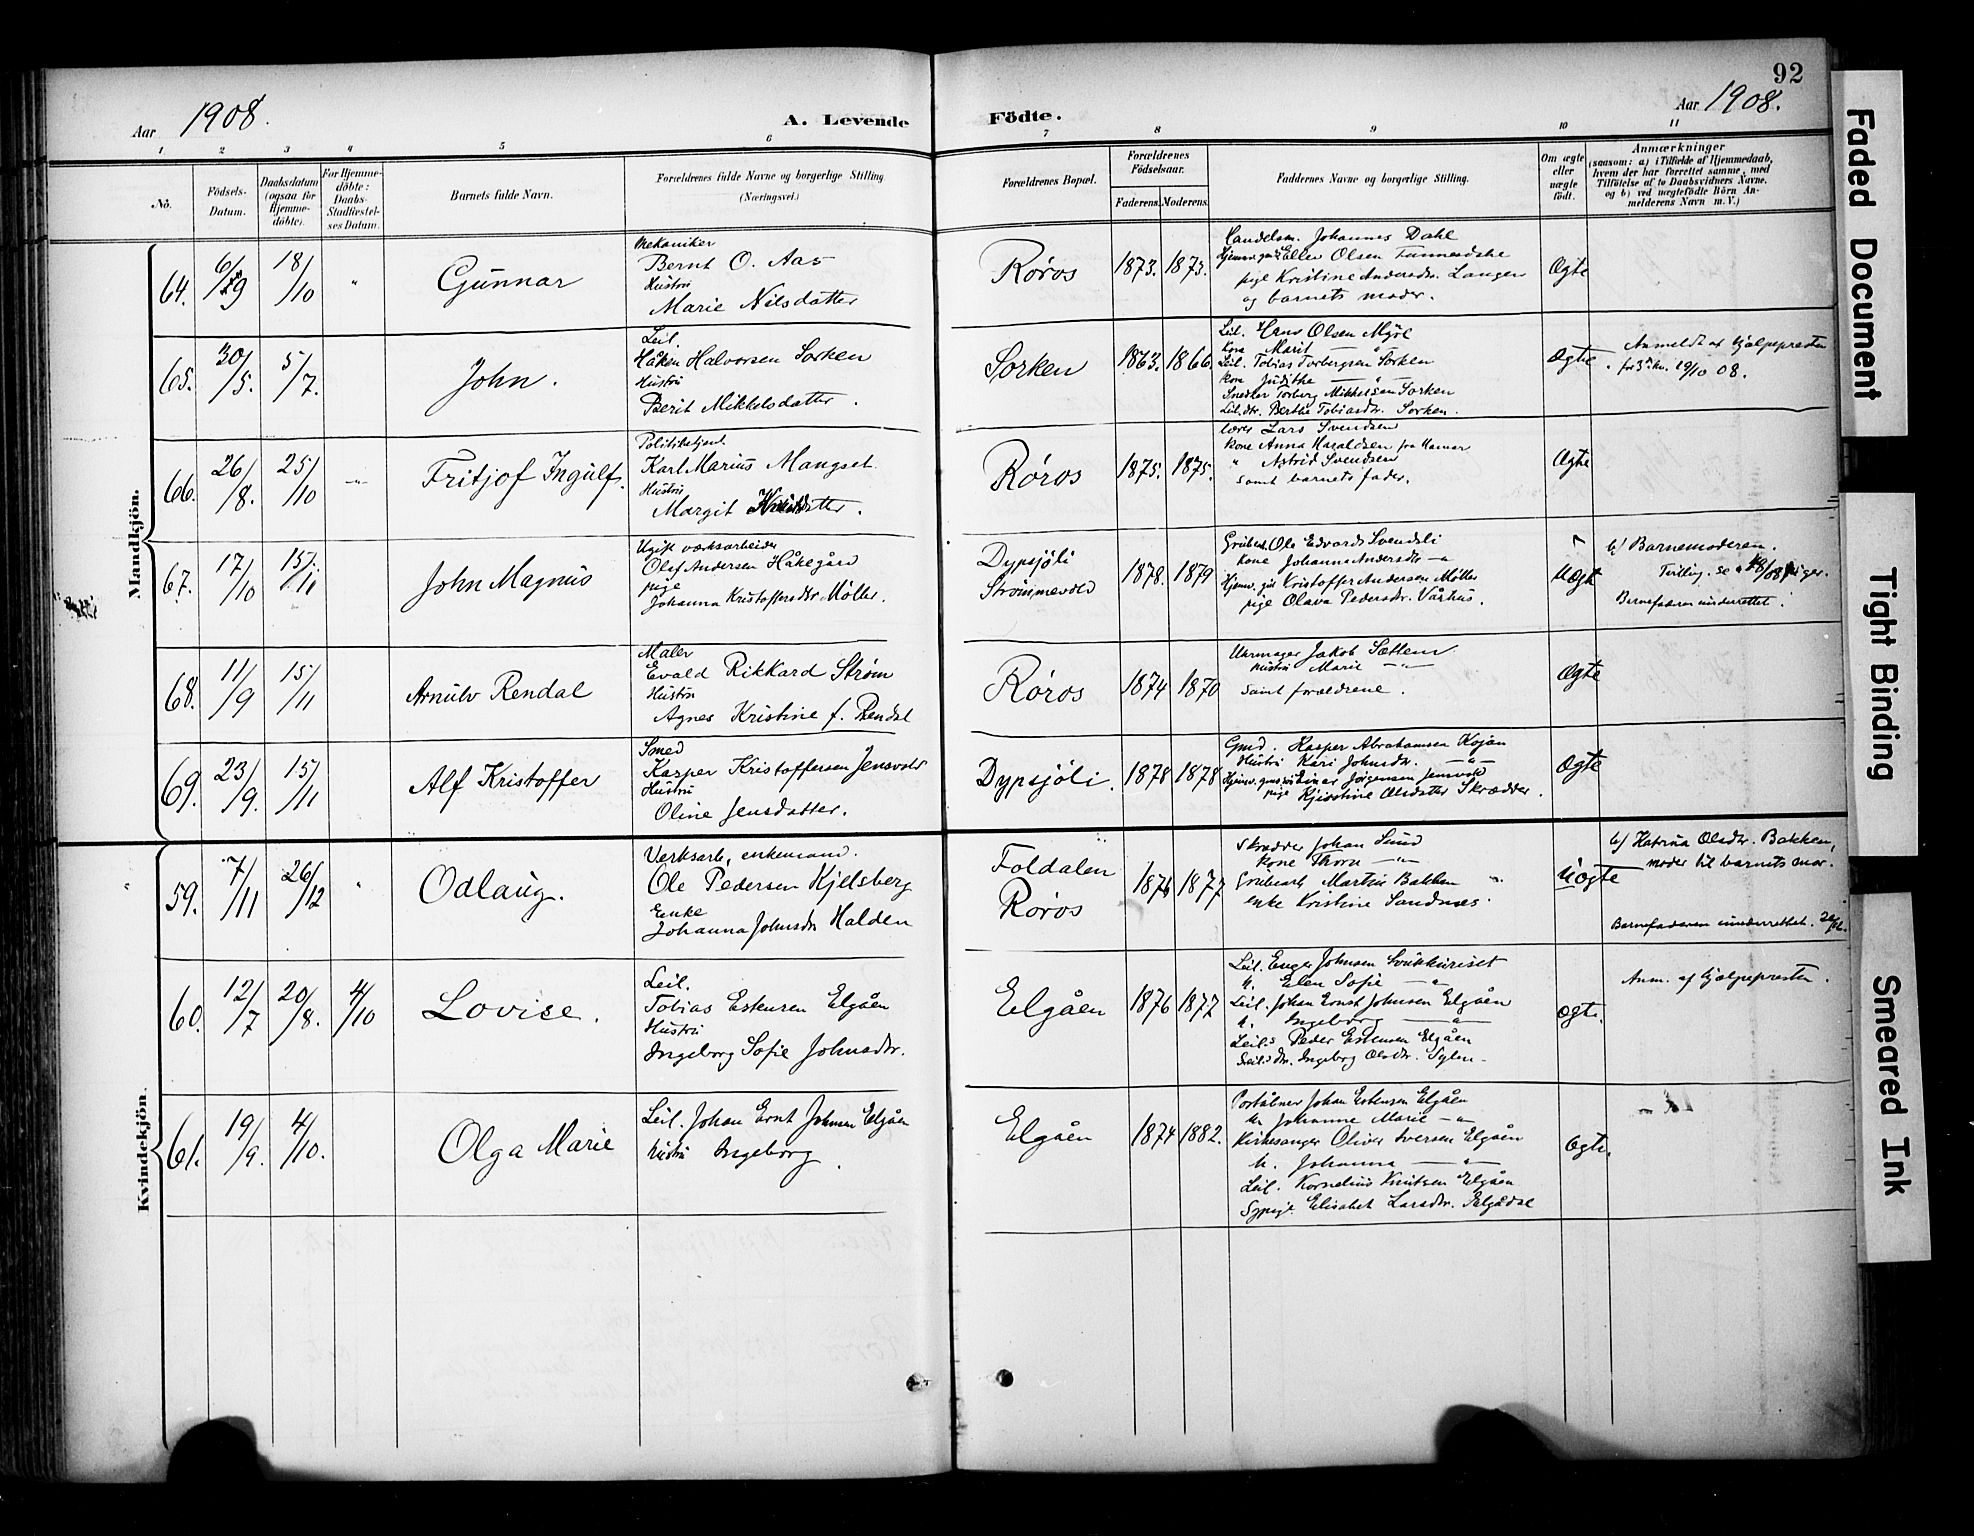 92
Aar 1908.
A. Levende Födte.
Aar 1908.
1 2 3 4 5 6 7 8 9 10 11
No.
Födsels-Datum.
Daabsdatum (ogsaa for Hjemmedöbte).
For Hjemmedöbte: Daabs-Stadfæstelses Datum.
Barnets fulde Navn.
Forældrenes fulde Navne og borgerlige Stilling (Næringsvei.)
Forældrenes Bopæl.
Forældrenes Födselsaar.
Faderens. Moderens.
Faddernes Navne og borgerlige Stilling.
Om ægte eller uægte födt.
Anmærkninger
(saasom: a) i Tilfælde af Hjemmedaab,
hvem der har forrettet samme, med
Tilföielse af to Daabsvidners Navne,
og b) ved uægtefödte Börn An-
melderens Navn m. V.)
Mandkjön.
64. 6/9 18/10 "
Gunnar
Mekaniker
Bernt O. Aas
Hustru
Marie Nilsdatter
Røros
1873. 1873.
Handelsm. Johannes Dahl
Olsen
pige Kristine Andersdr. Langen
og barnets moder.
Ægte
65. 30/5. 5/7.
John.
Leil.
Håken Halvorsen Sorken
Hustru
Berit Mikkelsdatter.
Sorken
1863. 1866.
Leil. Hans Olsen Myre
Kone Marit —"—
Leil. Tobias Torbergsen Sorken
Kone Judithe —"—
Snedker Torberg Mikkelsen Sorken
Leil.dtr. Berthe Tobiasdr. Sorken.
Ægte
Anmeldt af hjælpepresten
for 3 kv. 19/10 08.
66. 26/8. 25/10 -"-
Fritjof Ingulf.
Politibetjent
Karl Marius Mangset
Hustru
Margit
Røros
1875. 1875.
lærer Lars Svendsen
Kone Anna Haraldsen fra Hamar
" Astrid Svendsen
samt barnets fader.
Ægte
67. 17/10 15/11
John Magnus
Ugift værksarbeider
Olaf Andersen Håkegård
pige
Johanna Kristoffersdtr Møller
Dypsjöli
Strömmevold
1878. 1879
Grubearb. Ole Edvard Svendsli
Kone Johanna Andersdtr —"
Hjemv. gut Kristoffer Andersen Møller
pige Olava Pedersdr. Vårhus.
Uægt
b/ Barnemoderen.
Tvilling. se piger.
Barnefaderen underrettet.
68. 11/9 15/11
Arnulv Rendal
Maler
Evald Rikkard Strøm
Hustru
Agnes Kristine f. Rendal
Røros
1874 1870
Urmager Jakob Sættem
Hustru Marie —"—
samt forældrene.
Ægte
69. 23/9. 15/11
Alf Kristoffer
Smed
Kasper Kristoffersen Jensvold
Hustru
Oline Jensdatter.
Dypsjöli.
1878 1878
Gmd. Kasper Abrahamsen Kojan
Hustru Kari Johnsdr. —"—
Einar Jörgensen Jensvold
pige Kjirstine Olsdatter Skrædder.
Ægte
Kvindekjön.
59. 7/11 26/12 "
Odlaug.
Verksarb, enkemand.
Ole Pedersen Kjelsberg
Enke
Johanna Johnsdr Halden
Foldalen
Røros
1876 1877
Skrædder Johan Sund
Kone Thora —"—
Grubearb Martin Bakken "
enke Kristine Sandnes.
Uægte
b/ Katrina Olsdtr. Bakken,
moder til barnets mor.
Barnefaderen underrettet.
60. 12/7 20/8. 4/10
Lovise.
Leil.
Tobias Estensen Elgåen
Hustru
Ingeborg Sofie Johnsdr.
Elgåen
1876 1877
Leil. Enger Johnsen Svukkuriset
h. Elen Sofie —"—
Leil. Johan Ernst Johnsen Elgåen
h. Ingeborg —"—
Leil.s Peder Estensen Elgåen
Leil.s dr. Ingeborg Olsdtr. Sylen
ægte.
Anm. af hjælpepresten.
61. 19/9. 4/10.
Olga Marie
Leil. Johan Ernt Johnsen Elgåen
Hustru Ingeborg.
Elgåen
1874 1882.
Johan Estensen Elgåen
h. Johanne Marie —"—
Kirkesanger Oliver Iversen Elgåen
h. Johanna —"—
Leil. Kornelius Knutsen Elgåen
Sypige. Elisabet Larsdtr. Elgådal
ægte.
Faded Document
Tight Binding
Smeared Ink